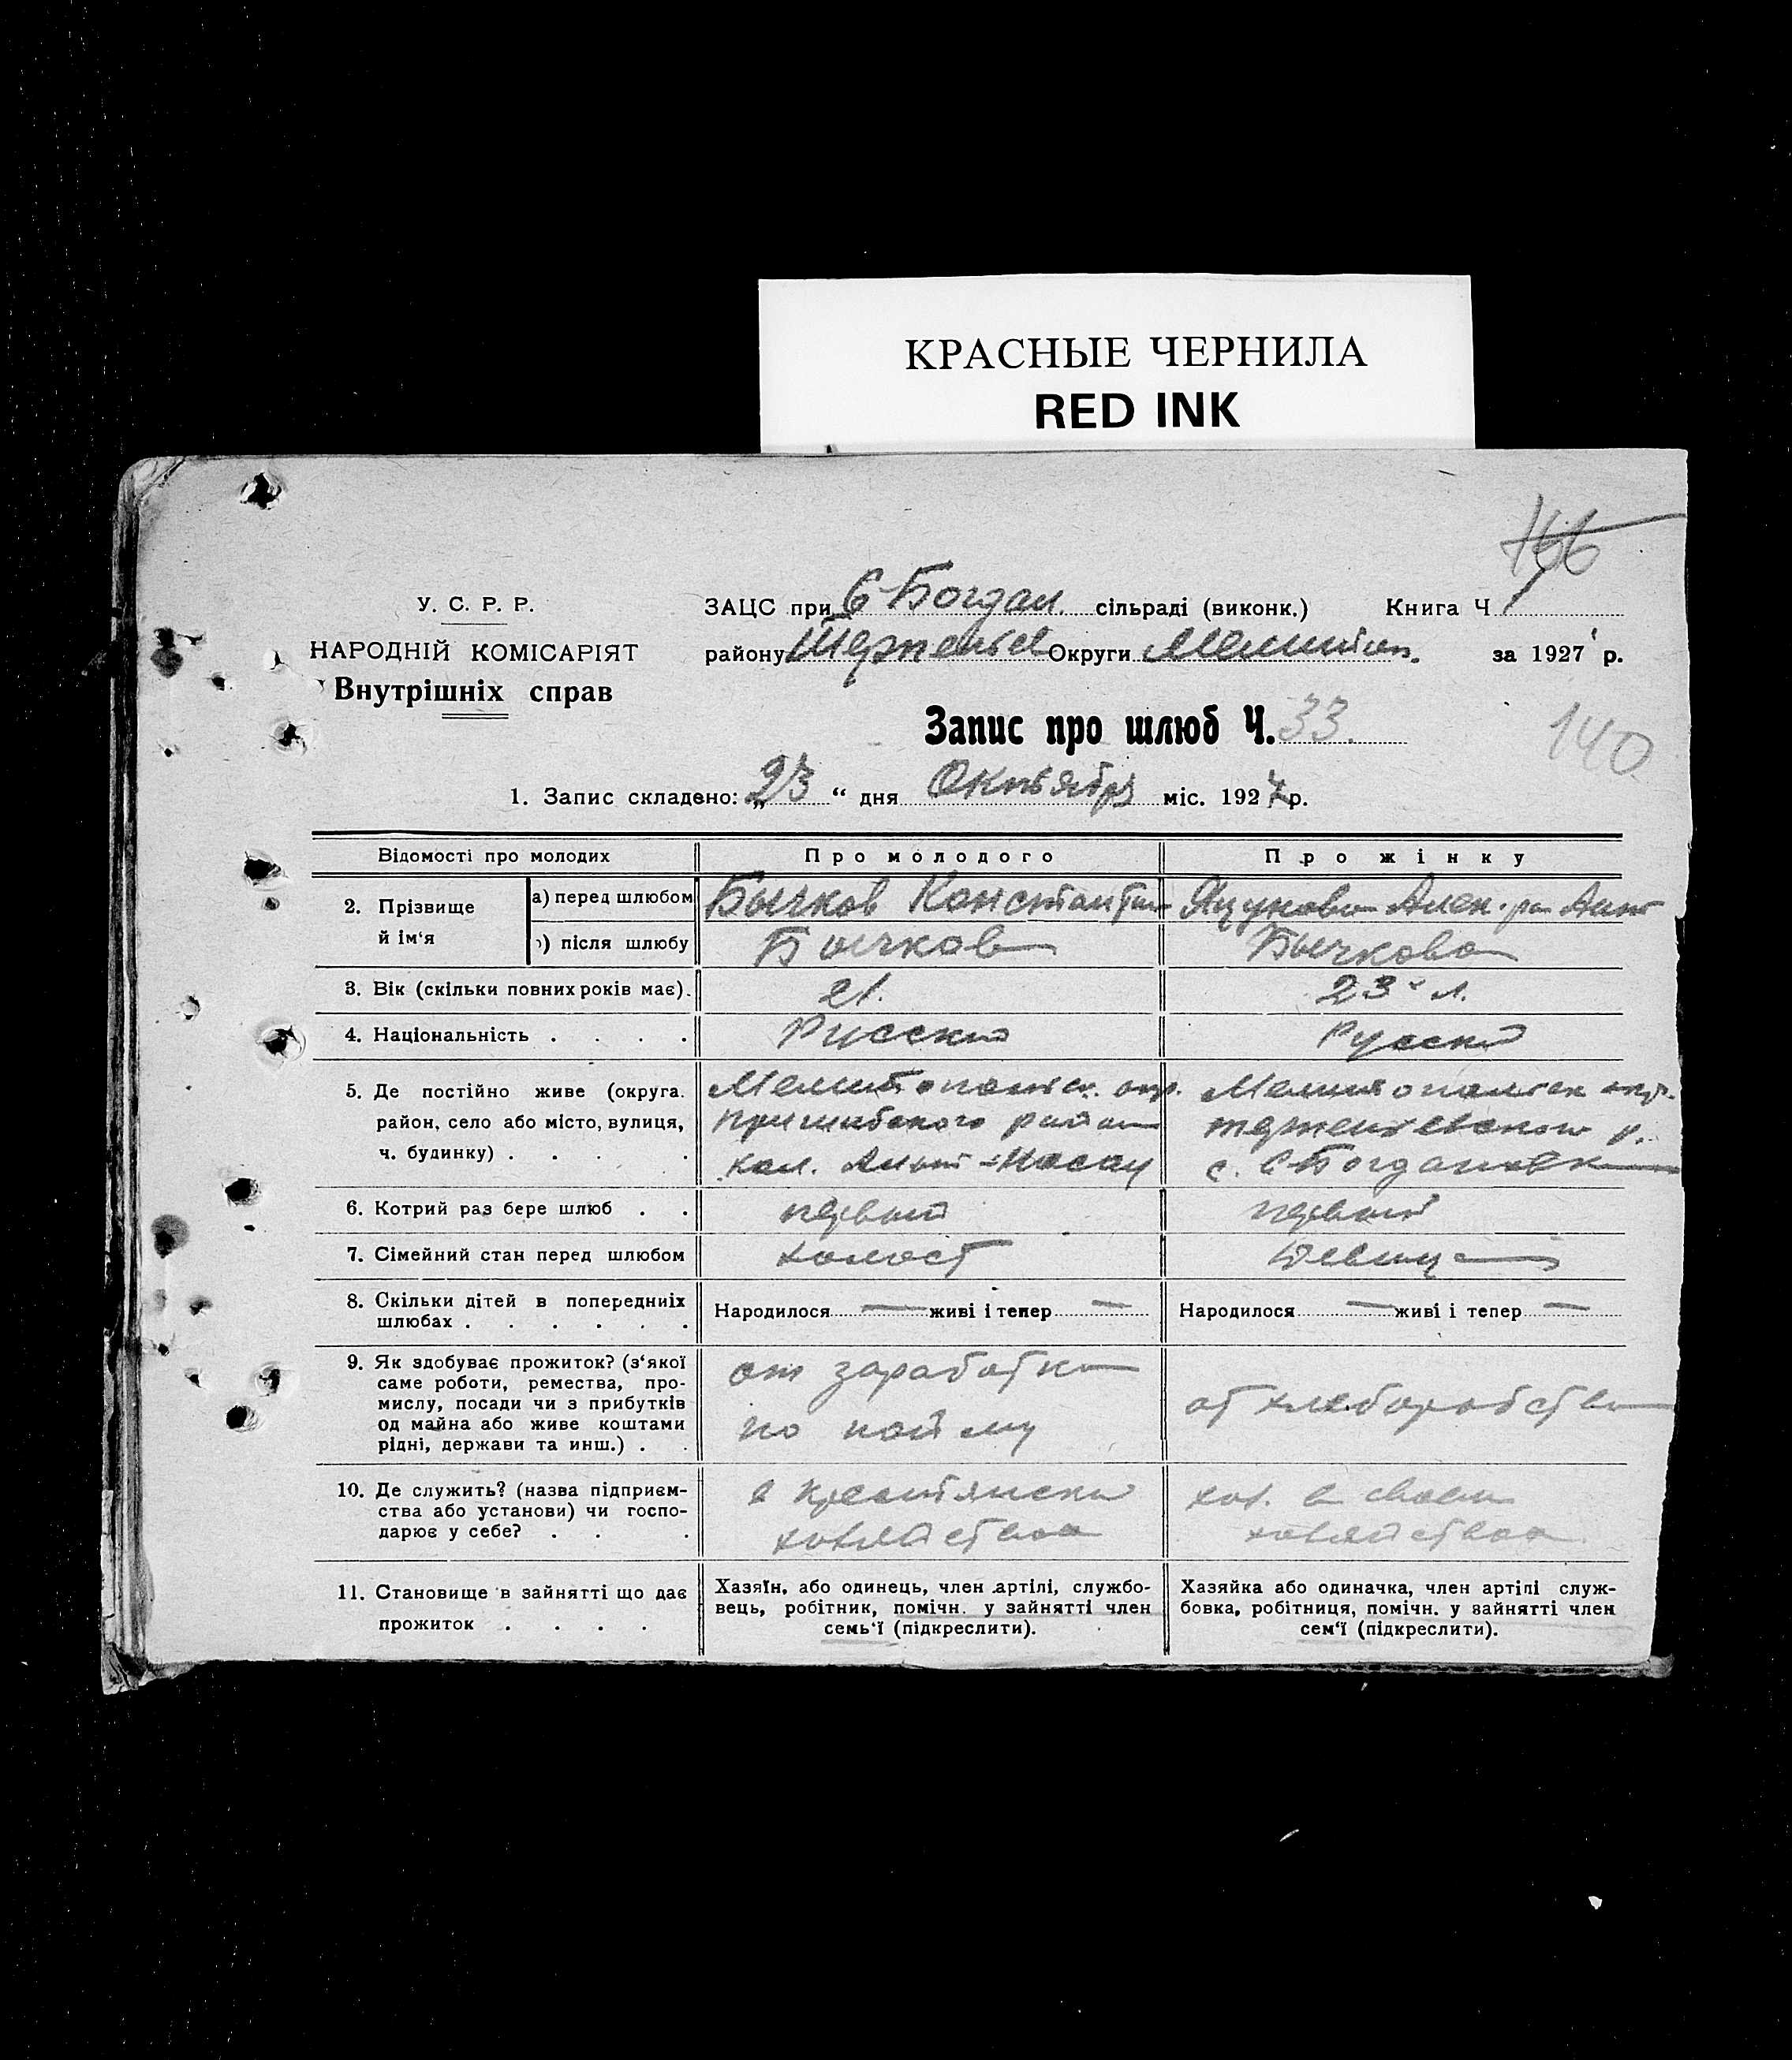 КРАСНЫЕ ЧЕРНИЛА
RED INK
166
У. С. Р. Р.
НАРОДНІЙ КОМІСАРІЯТ
Внутрішніх справ
ЗАЦС при С Богдан. сільраді (виконк.) Книга Ч 1
району Терпеньев Округи Мелитоп. за 1927 р.
Запис про шлюб Ч. 33.
140
1. Запис складено: „23“ дня Октября міс. 1927 р.
Відомості про молодих
Про молодого
Про жінку
2. Прізвище й ім‘я
а) перед шлюбом
Бычков Константин
Яцунова Алек-ра
б) після шлюбу
Бычков
Бычкова
3. Вік (скільки повних років має).
21.
23 л.
4. Національність . . . .
Русский
Русск
5. Де постійно живе (округа.
район, село або місто, вулиця,
ч. будинку) . . . .
Мелитопольск. окр.
Пришибского района
кол. Альт-Насау
Мелитопольск окр.
терпеньевского р.
с. С Богдановка
6. Котрий раз бере шлюб . .
первый
первый
7. Сімейний стан перед шлюбом
холост
девица
8. Скільки дітей в попередниіх
шлюбах . . . . . .
Народилося — живі і тепер —
Народилося — живі і тепер —
9. Як здобуває прожиток? (з‘якої
саме роботи, ремества, про-
мислу, посади чи з прибутків
од майна або живе коштами
рідні, держави та инш.) . .
от заработка
по найму
от хлеборобства
10. Де служить? (назва підприєм-
ства або установи) чи госпо-
дарює у себе? . . .
в крестянском
хозяйстве
хоз. в своем
хозяйстве
11. Становище в зайнятті що дає
прожиток . . . .
Хазяїн, або одинець, член артілі, службо-
вець, робітник, помічн. у зайнятті член
семь‘ї (підкреслити).
Хазяйка або одиначка, член артілі служ-
бовка, робітниця, помічн. у зайнятті член
сем‘ї (підкреслити).